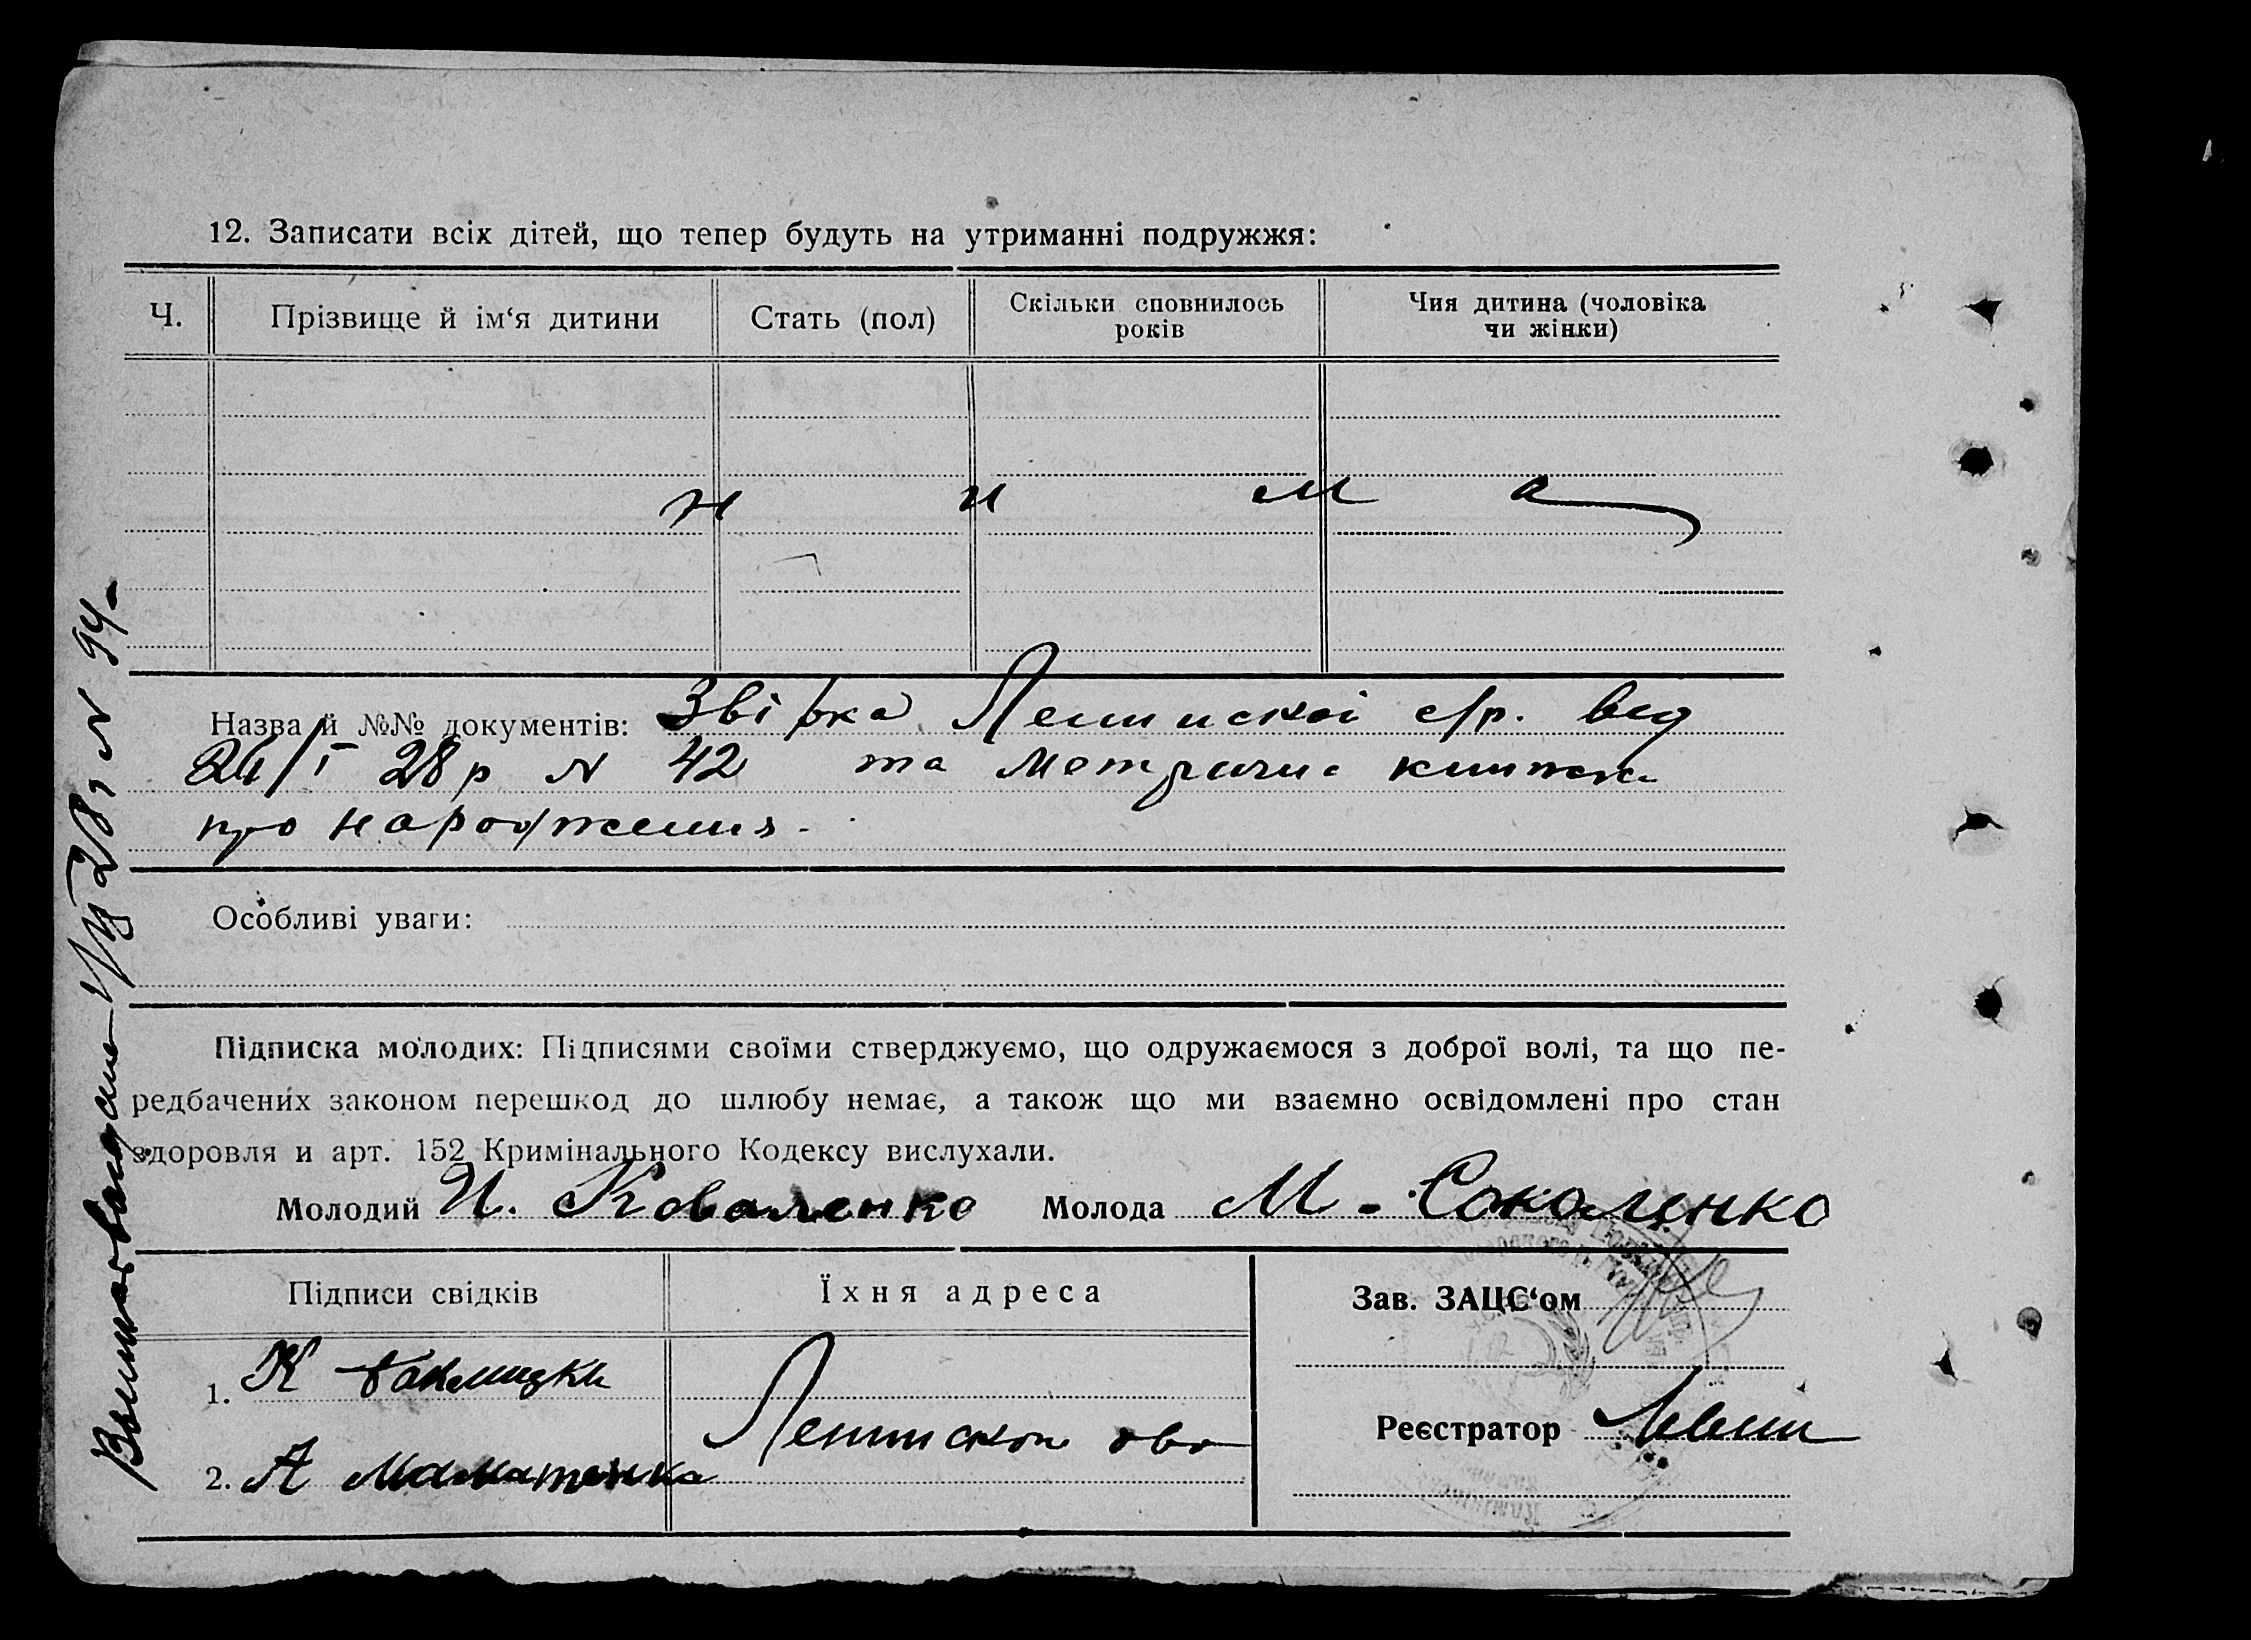 12. Записати всіх дітей, що тепер будуть на утриманні подружжя:
Ч.
Прізвище й ім‘я дитини
Стать (пол)
Скільки сповнилось
років
Чия дитина (чоловіка
чи жінки)
н и м а
Назва й №№ документів: с/р. від
24/I 28 р N 42 та метрична книжка
про народження.
Особливі уваги:
Підписка молодих: Підписями своїми стверджуємо, що одружаємося з доброї волі, та що пе-
редбачених законом перешкод до шлюбу немає, а також що ми взаємно освідомлені про стан
здоровля и арт. 152 Кримінального Кодексу вислухали.
Молодий И. Коваленко Молода М. Соколенко
Підписи свідків
Їхня адреса
Зав. ЗАЦС‘ом
1. К
2. А
Реєстратор
28 р N 94